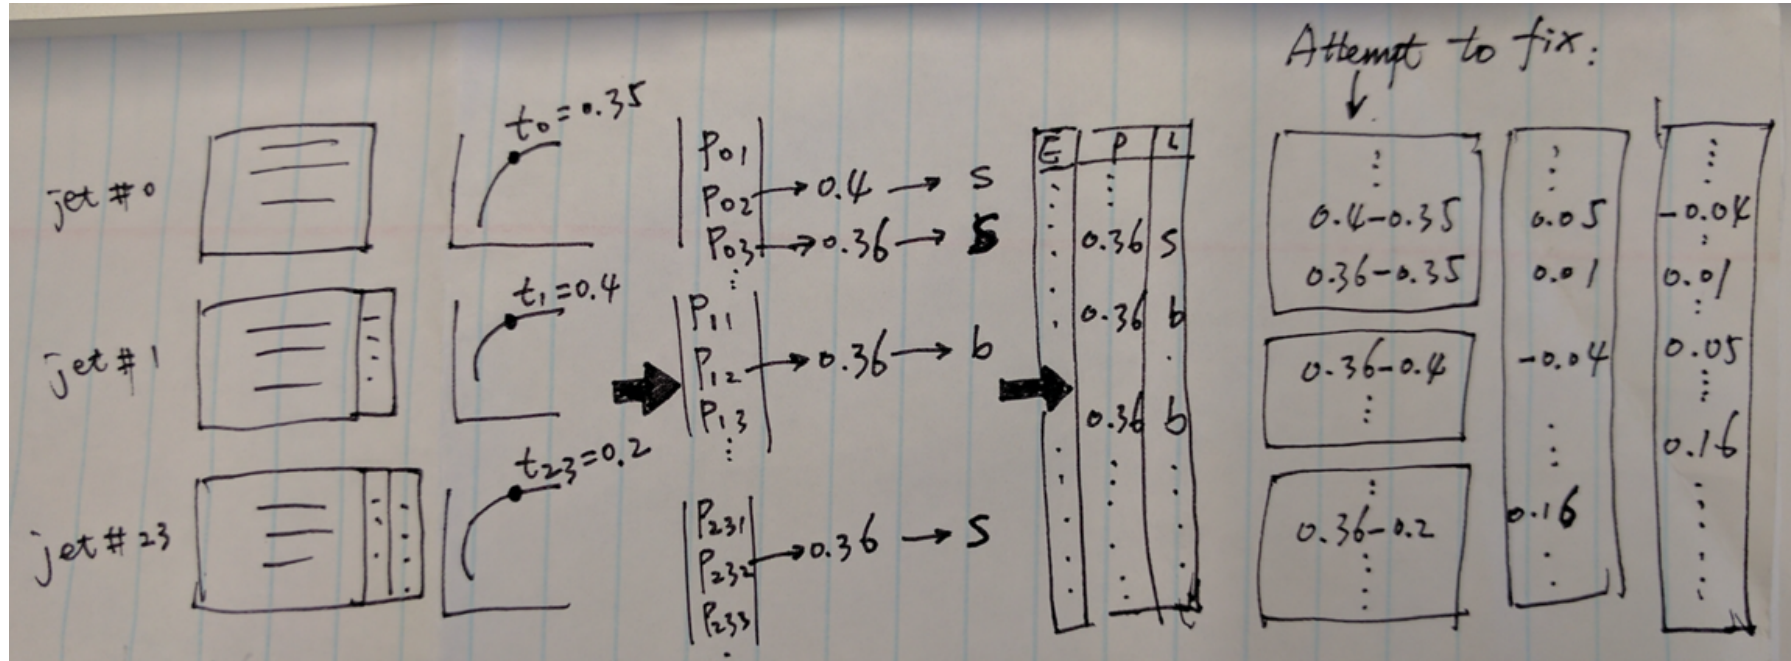 Attempt to fix:
jet #0
t0=0.35
P01
P02 → 0.4 → s
P03 → 0.36 → s
jet #1
t1=0.4
P11
P12 → 0.36 → b
P13
jet #23
t23=0.2
P231
P232 → 0.36 → s
P233
E P L
0.36 s
0.36 b
0.36 b
0.4-0.35
0.36-0.35
0.36-0.4
0.36-0.2
0.05
0.01
-0.04
0.16
-0.04
0.01
0.05
0.16